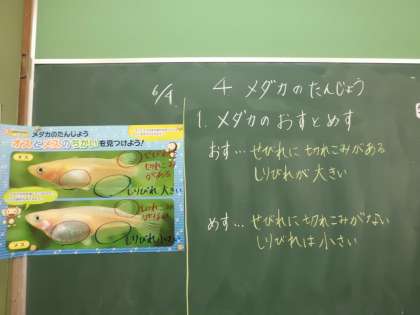 6/4
4 メダカのたんじょう
1. メダカのおすとめす
おす…せびれに切れこみがある
しりびれが大きい
めす…せびれに切れこみがない
しりびれは小さい
メダカのたんじょう
オスとメスのちがいを見つけよう!
オス
せびれに
切れこみ
がある
しりびれ大きい
メス
切れこみ
がない
しりびれ小さい